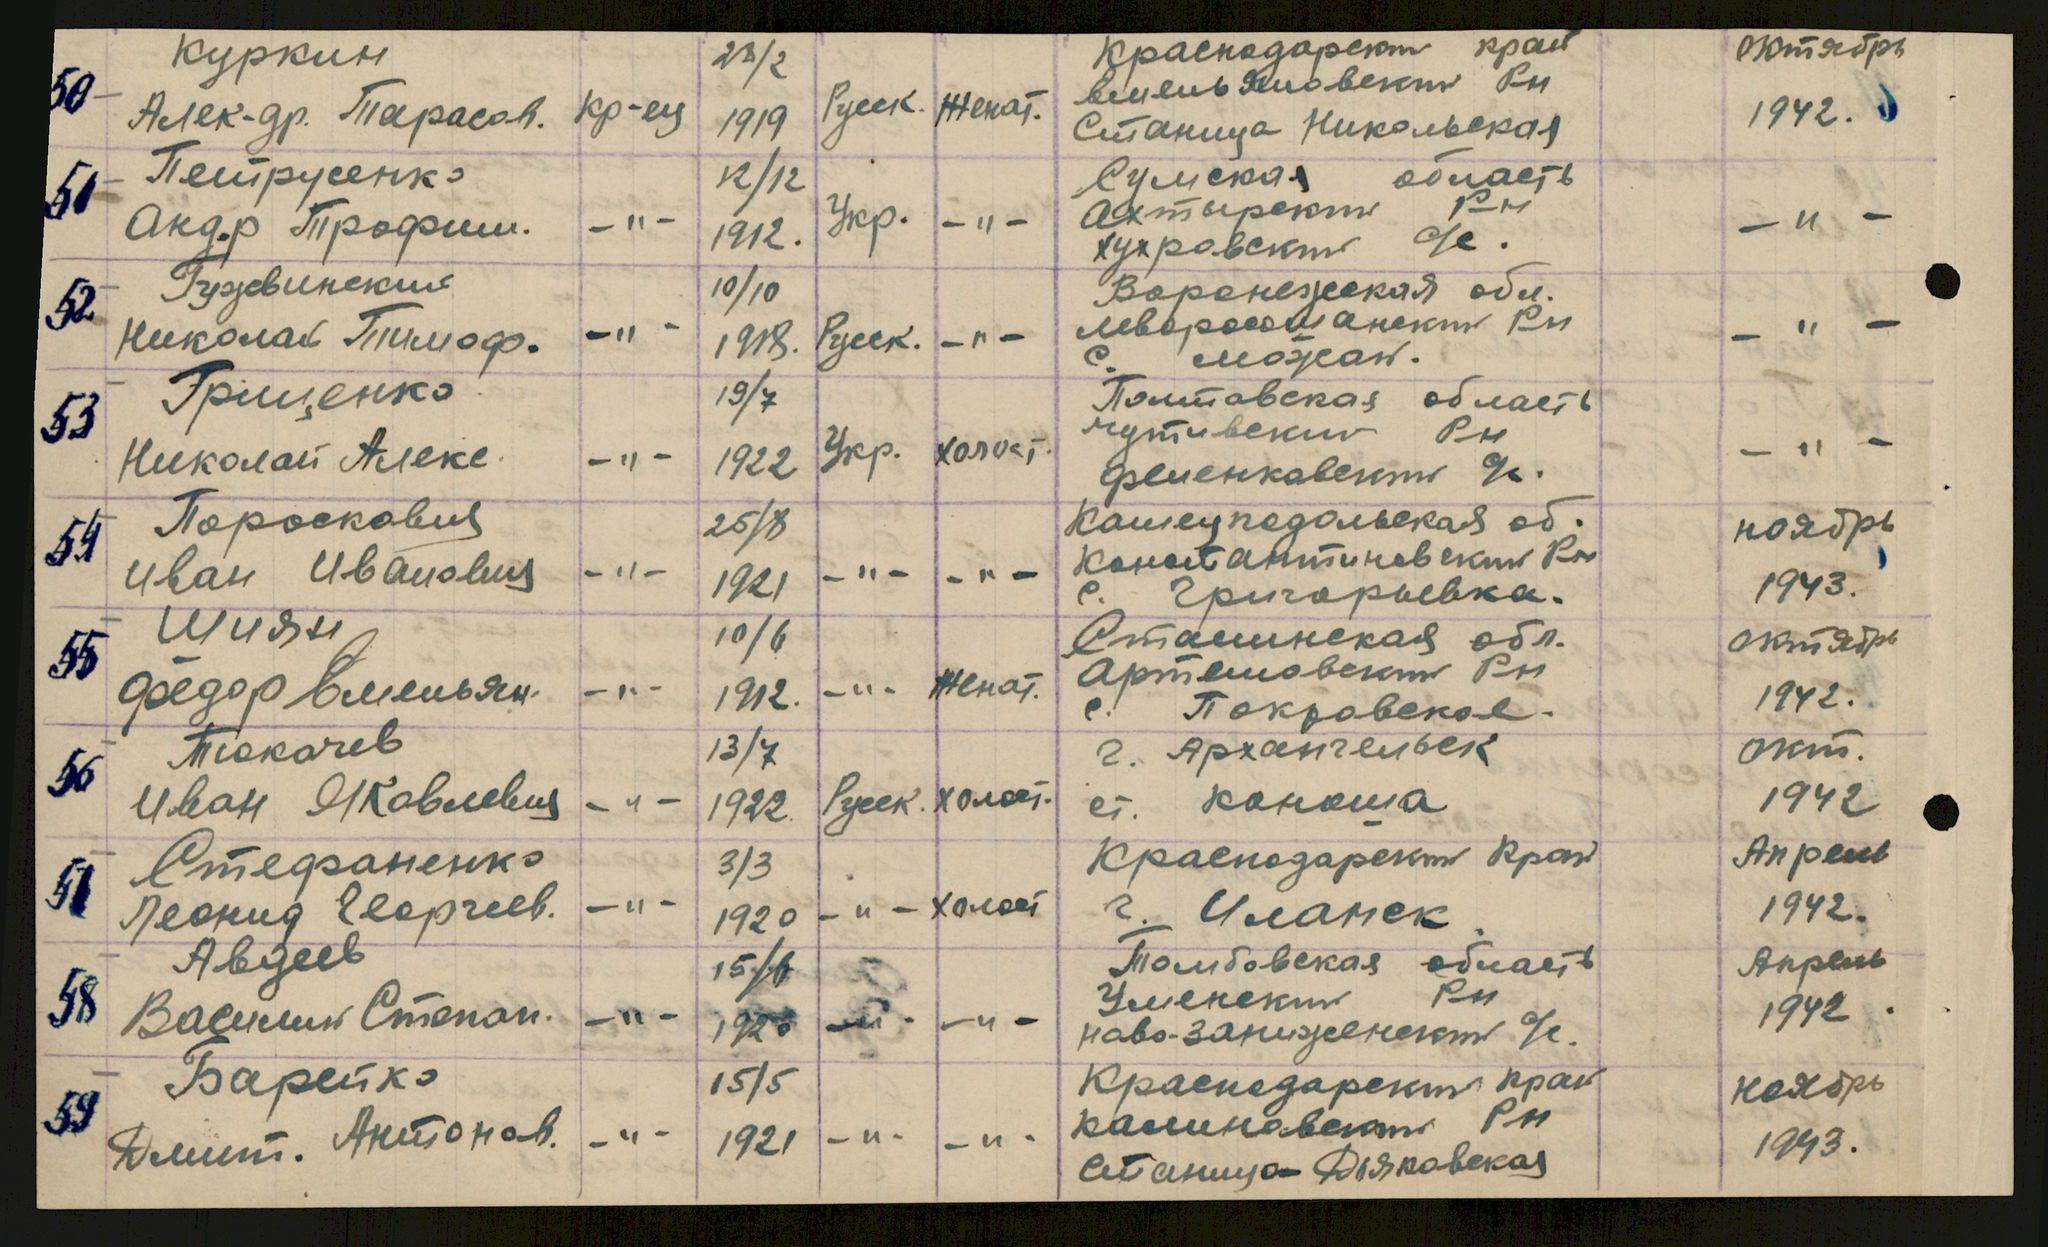 50 Куркин 23/2 Краснодарский край октябрь
Алек-др. Тарасов. Кр-ец 1919 Русск. Женат. Емельяновский Рн 1942.
Станица Никольская
51 Петрусенко 12/12 Сумская область
Анд.р Трофим. -"- 1912. Укр. -"- Ахтырский Рн -"-
хухровский с/с.
52 Гузевинский 10/10 Воронежская обл.
Николай Тимоф. -"- 1918. Русск. -"- леворосошанский Рн -"-
с. можай.
53 Грищенко 19/7 Полтавская область
Николай Алекс. -"- 1922 Укр. холост. чутивский Рн -"-
фененкавский с/с.
54 Пороскавиц 25/8 Камецподольская об. ноябрь
Иван Ивановиц -"- 1921 -"- -"- Константиновский Рн 1943.
с. Григорьевка.
55 Шиян 10/6 Сталинская обл. октябрь
Фёдор Емельян. -"- 1912. -"- Женат. Артемовский Рн 1942.
с. Покровское.
56 Токачев 13/7 г. Архангельск окт.
Иван Яковлевиц -"- 1922. Русск. холост. ст. Коноша 1942
57 Стефаненко 3/3 Краснодарский край Апрель
Леонид Георгиев. -"- 1920 -"- холост г. Иланск 1942.
58 Авдеев 15/6 Тамбовская область Апрель
Василий Степан. -"- 1920 -"- -"- Уменский Рн 1942.
ново-заниженский с/с.
59 Барейко 15/5 Краснодарский край ноябрь
Дмит. Антонов. -"- 1921 -"- -"- калиновский Рн 1943.
станица Дляковская